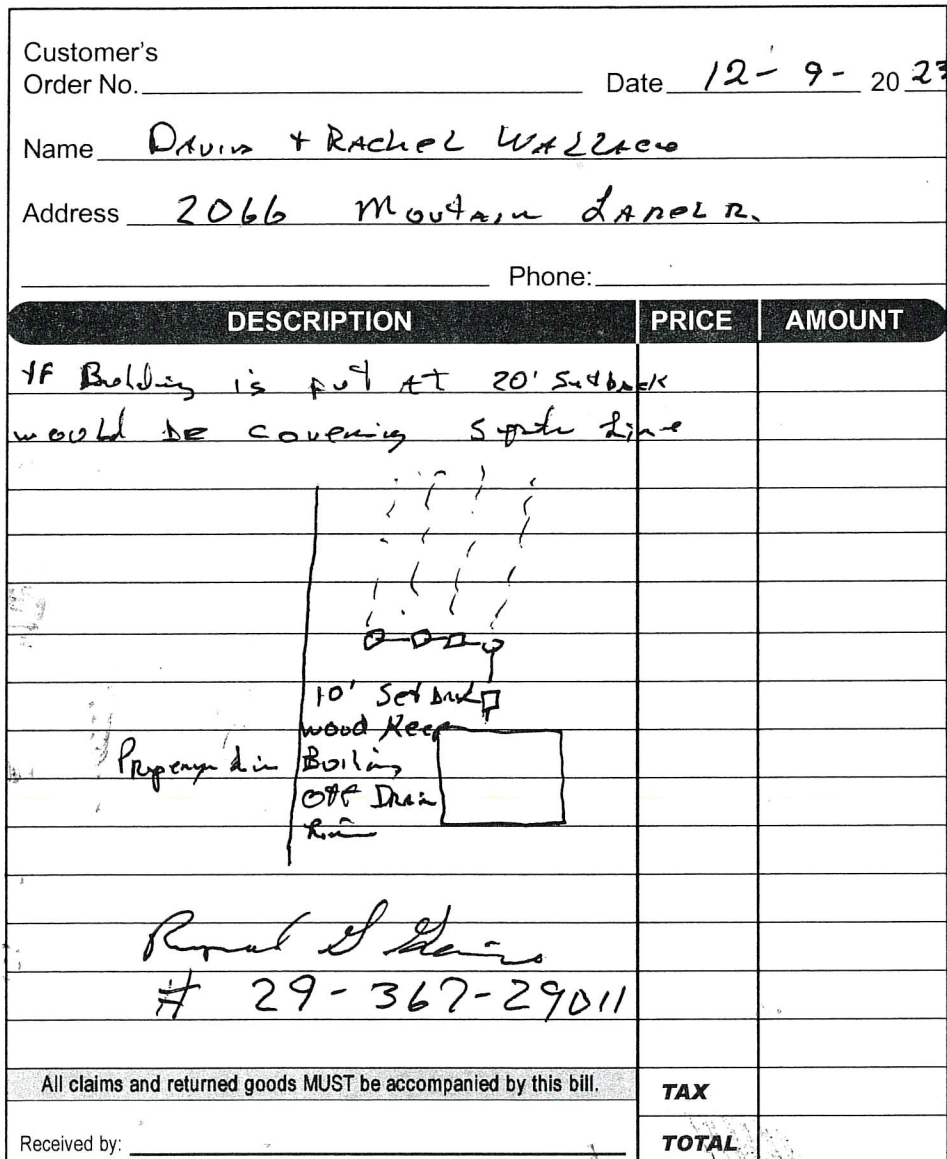 Customer's
Order No. Date 12- 9- 20 23
Name David + Rachel Wallace
Address 2066 Moutain
Phone:
DESCRIPTION PRICE AMOUNT
If Building is put at 20' Setback
would be covering Septic Line
10' Set Back
wood Keep
Property Line
Off Drain
# 29-367-29011
All claims and returned goods MUST be accompanied by this bill.
TAX
Received by:
TOTAL